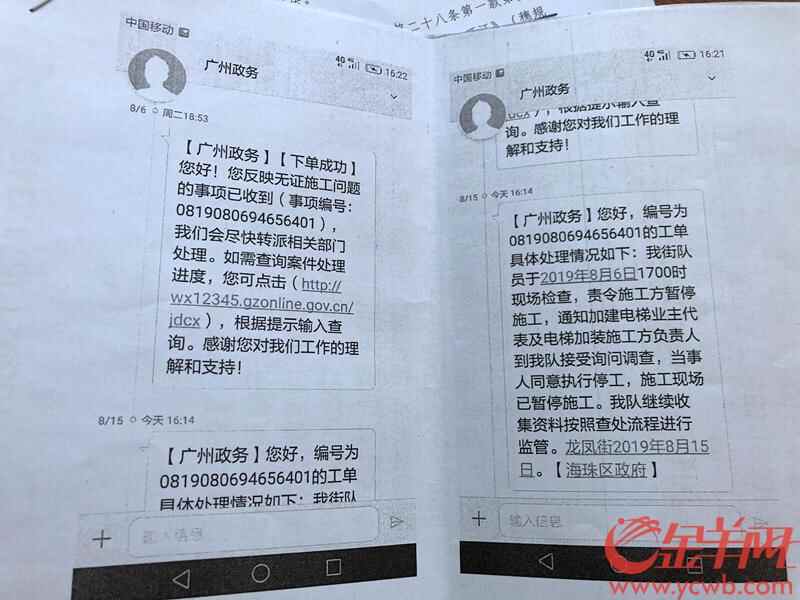 二十八条第一款第
（穗规
中国移动
16:22
广州政务
8/6 周二18:53
【广州政务】【下单成功】
您好！您反映无证施工问题
的事项已收到（事项编号：
0819080694656401），
我们会尽快转派相关部门
处理。如需查询案件处理
进度，您可点击（http://
wx12345.gzonline.gov.cn/
jdcx），根据提示输入查
询。感谢您对我们工作的理
解和支持！
8/15 今天 16:14
【广州政务】您好，编号为
0819080694656401的工单
具体处理情况如下：我街队
输入信息
中国移动
16:21
广州政务
dcx），根据提示输入查
询。感谢您对我们工作的理
解和支持！
8/15 今天 16:14
【广州政务】您好，编号为
0819080694656401的工单
具体处理情况如下：我街队
员于2019年8月6日1700时
现场检查，责令施工方暂停
施工，通知加建电梯业主代
表及电梯加装施工方负责人
到我队接受询问调查，当事
人同意执行停工，施工现场
已暂停施工。我队继续收
集资料按照查处流程进行
监管。龙凤街2019年8月15
日。【海珠区政府】
输入信息
金羊网
www.ycwb.com